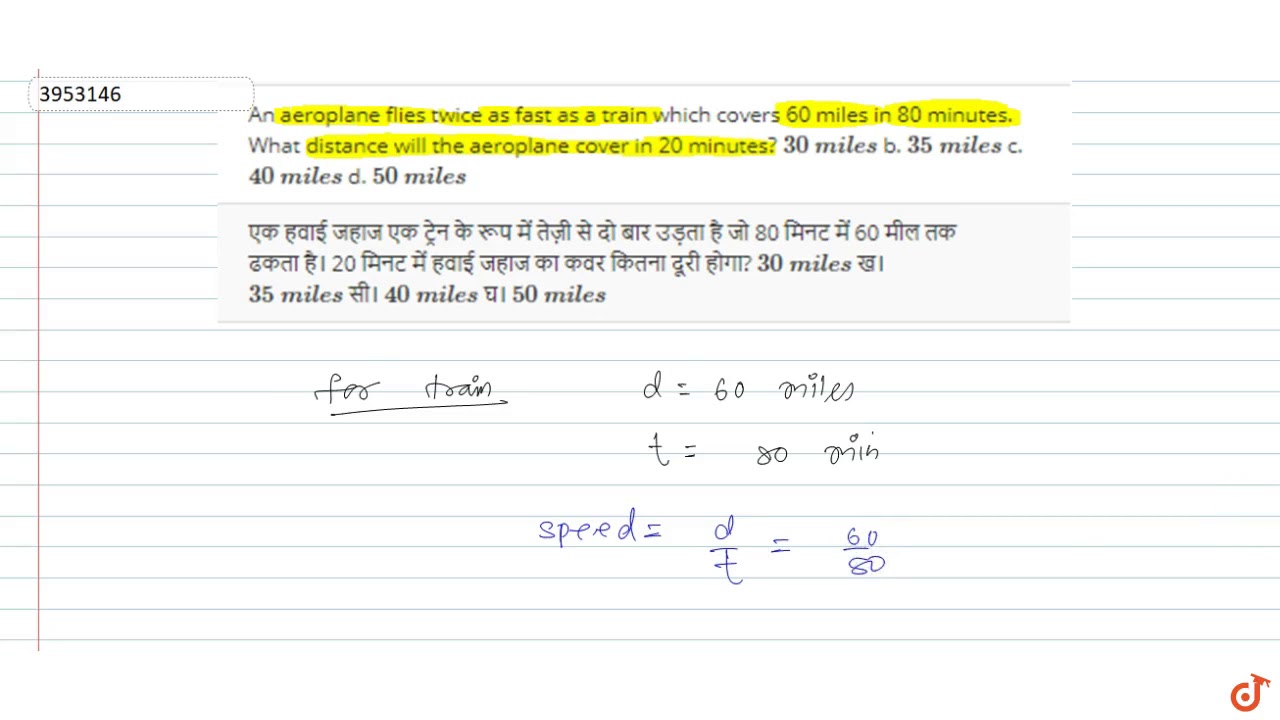 3953146
An aeroplane flies twice as fast as a train which covers 60 miles in 80 minutes.
What distance will the aeroplane cover in 20 minutes? 30 miles b. 35 miles c.
40 miles d. 50 miles
एक हवाई जहाज एक ट्रेन के रूप में तेज़ी से दो बार उड़ता है जो 80 मिनट में 60 मील तक
ढकता है। 20 मिनट में हवाई जहाज का कवर कितना दूरी होगा? 30 miles ख।
35 miles सी। 40 miles घ। 50 miles
for train d = 60 miles
t = 80 min
speed = d/t = 60/80